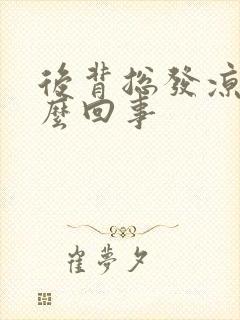 後背總發涼
麼回事
崔夢夕